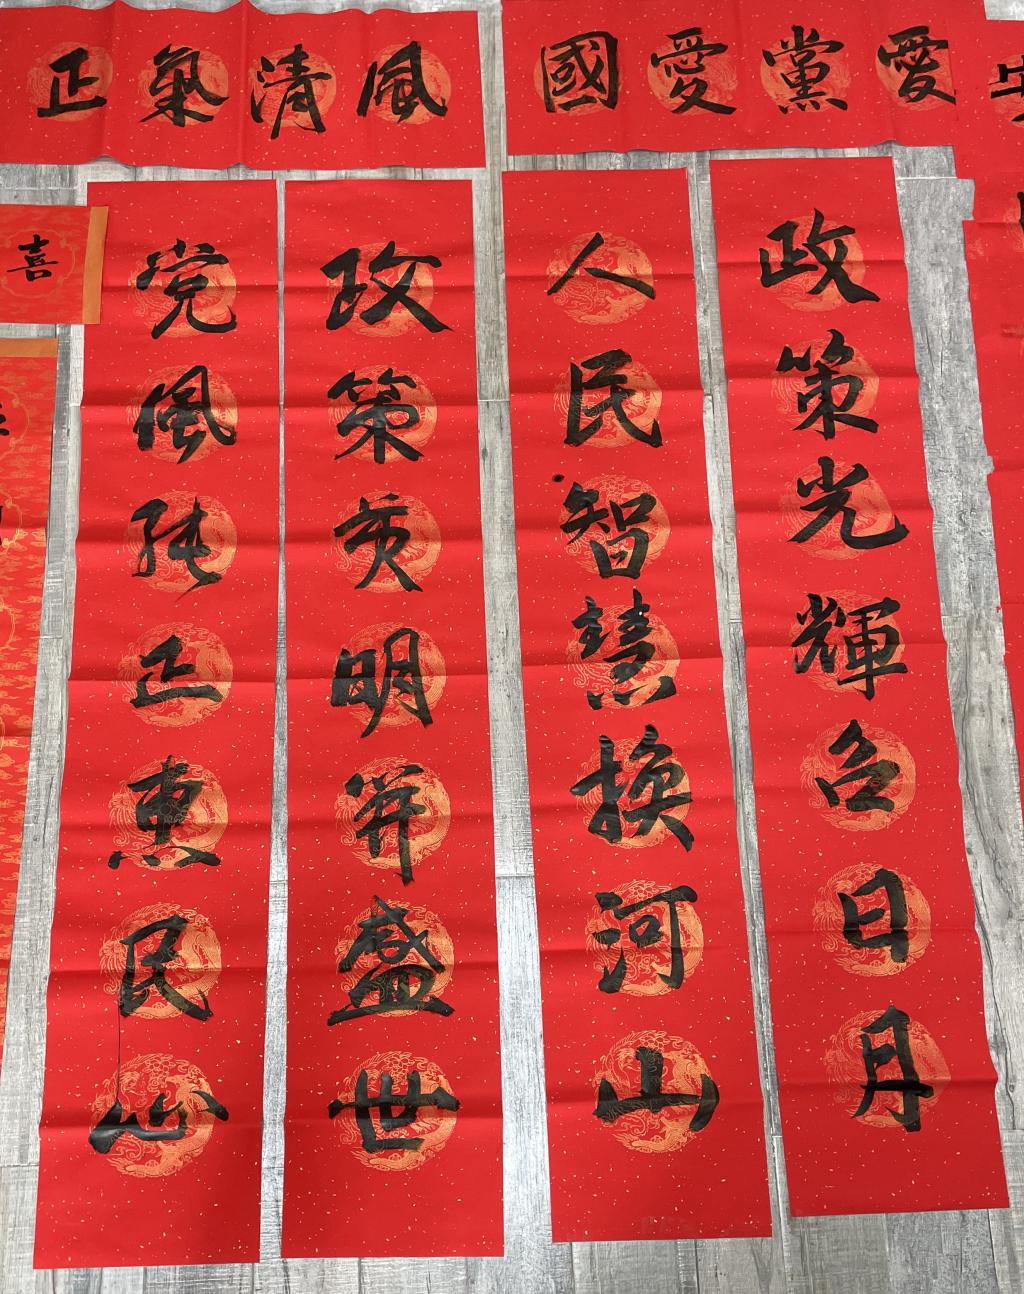 愛黨愛國
風清氣正
政策光輝召日月
人民智慧換河山
政策英明開盛世
党風純正惠民心
喜